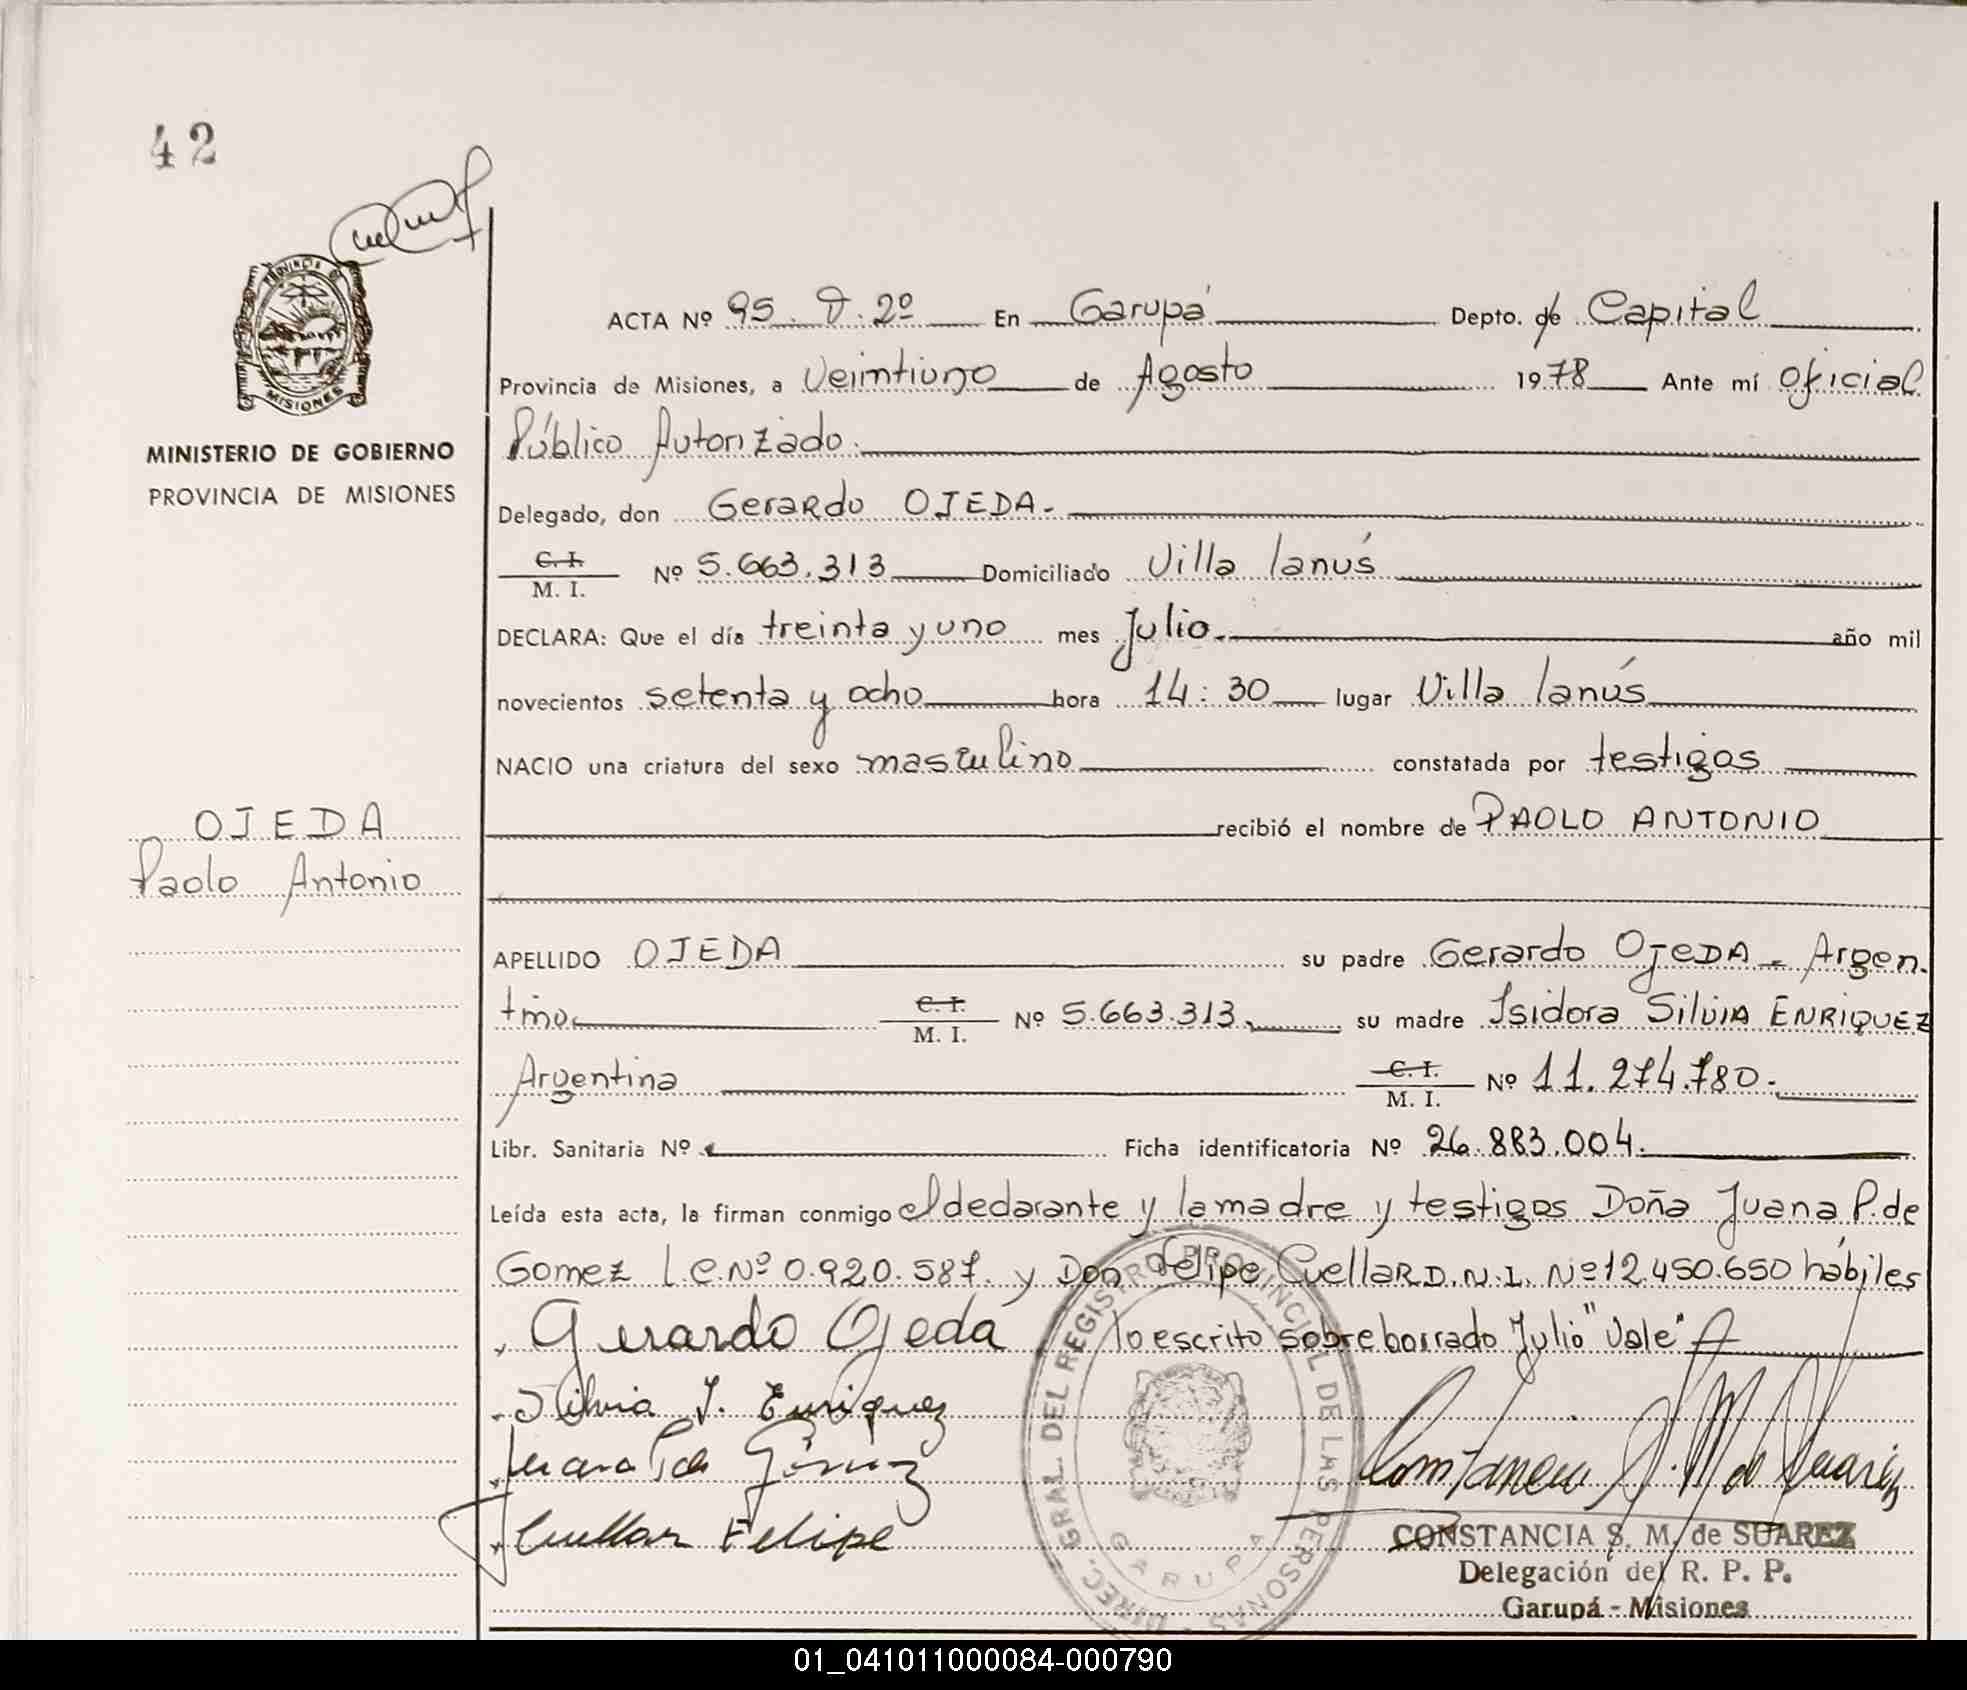 42
PROVINCIA DE
MISIONES
MINISTERIO DE GOBIERNO
PROVINCIA DE MISIONES
ACTA Nº 95. D. 2º En Garupá Depto. de Capital
Provincia de Misiones, a Veintiuno de Agosto 1978 Ante mí Oficial
Público Autorizado.
Delegado, don Gerardo OJEDA.
C. I.
M. I. Nº 5.663.313 Domiciliado Villa lanús
DECLARA: Que el día treinta y uno mes Julio. año mil
novecientos setenta y ocho hora 14:30 lugar Villa lanús
NACIO una criatura del sexo masculino constatada por testigos
recibió el nombre de PAOLO ANTONIO
OJEDA
Paolo Antonio
APELLIDO OJEDA su padre Gerardo OJEDA - Argen.
tino C. I.
M. I. Nº 5.663.313. su madre Isidora Silvia ENRIQUEZ
Argentina C. I.
M. I. Nº 11.274.780.
Libr. Sanitaria Nº Ficha identificatoria Nº 26.883.004.
Leída esta acta, la firman conmigo el declarante y la madre y testigos Doña Juana P. de
Gomez L.C. Nº 0.920.587. y Don Felipe Cuellar D.N.I. Nº 12.450.650 hábiles
Gerardo Ojeda lo escrito sobre borrado Julio "Vale"
Silvia I. Enriquez
Juana P de Gómez
Cuellar Felipe
Constancia S. M de Suarez
DIREC. GRAL. DEL REGISTRO PROVINCIAL DE LAS PERSONAS
GARUPA
CONSTANCIA S. M. de SUAREZ
Delegación del R. P. P.
Garupá - Misiones
01_041011000084-000790